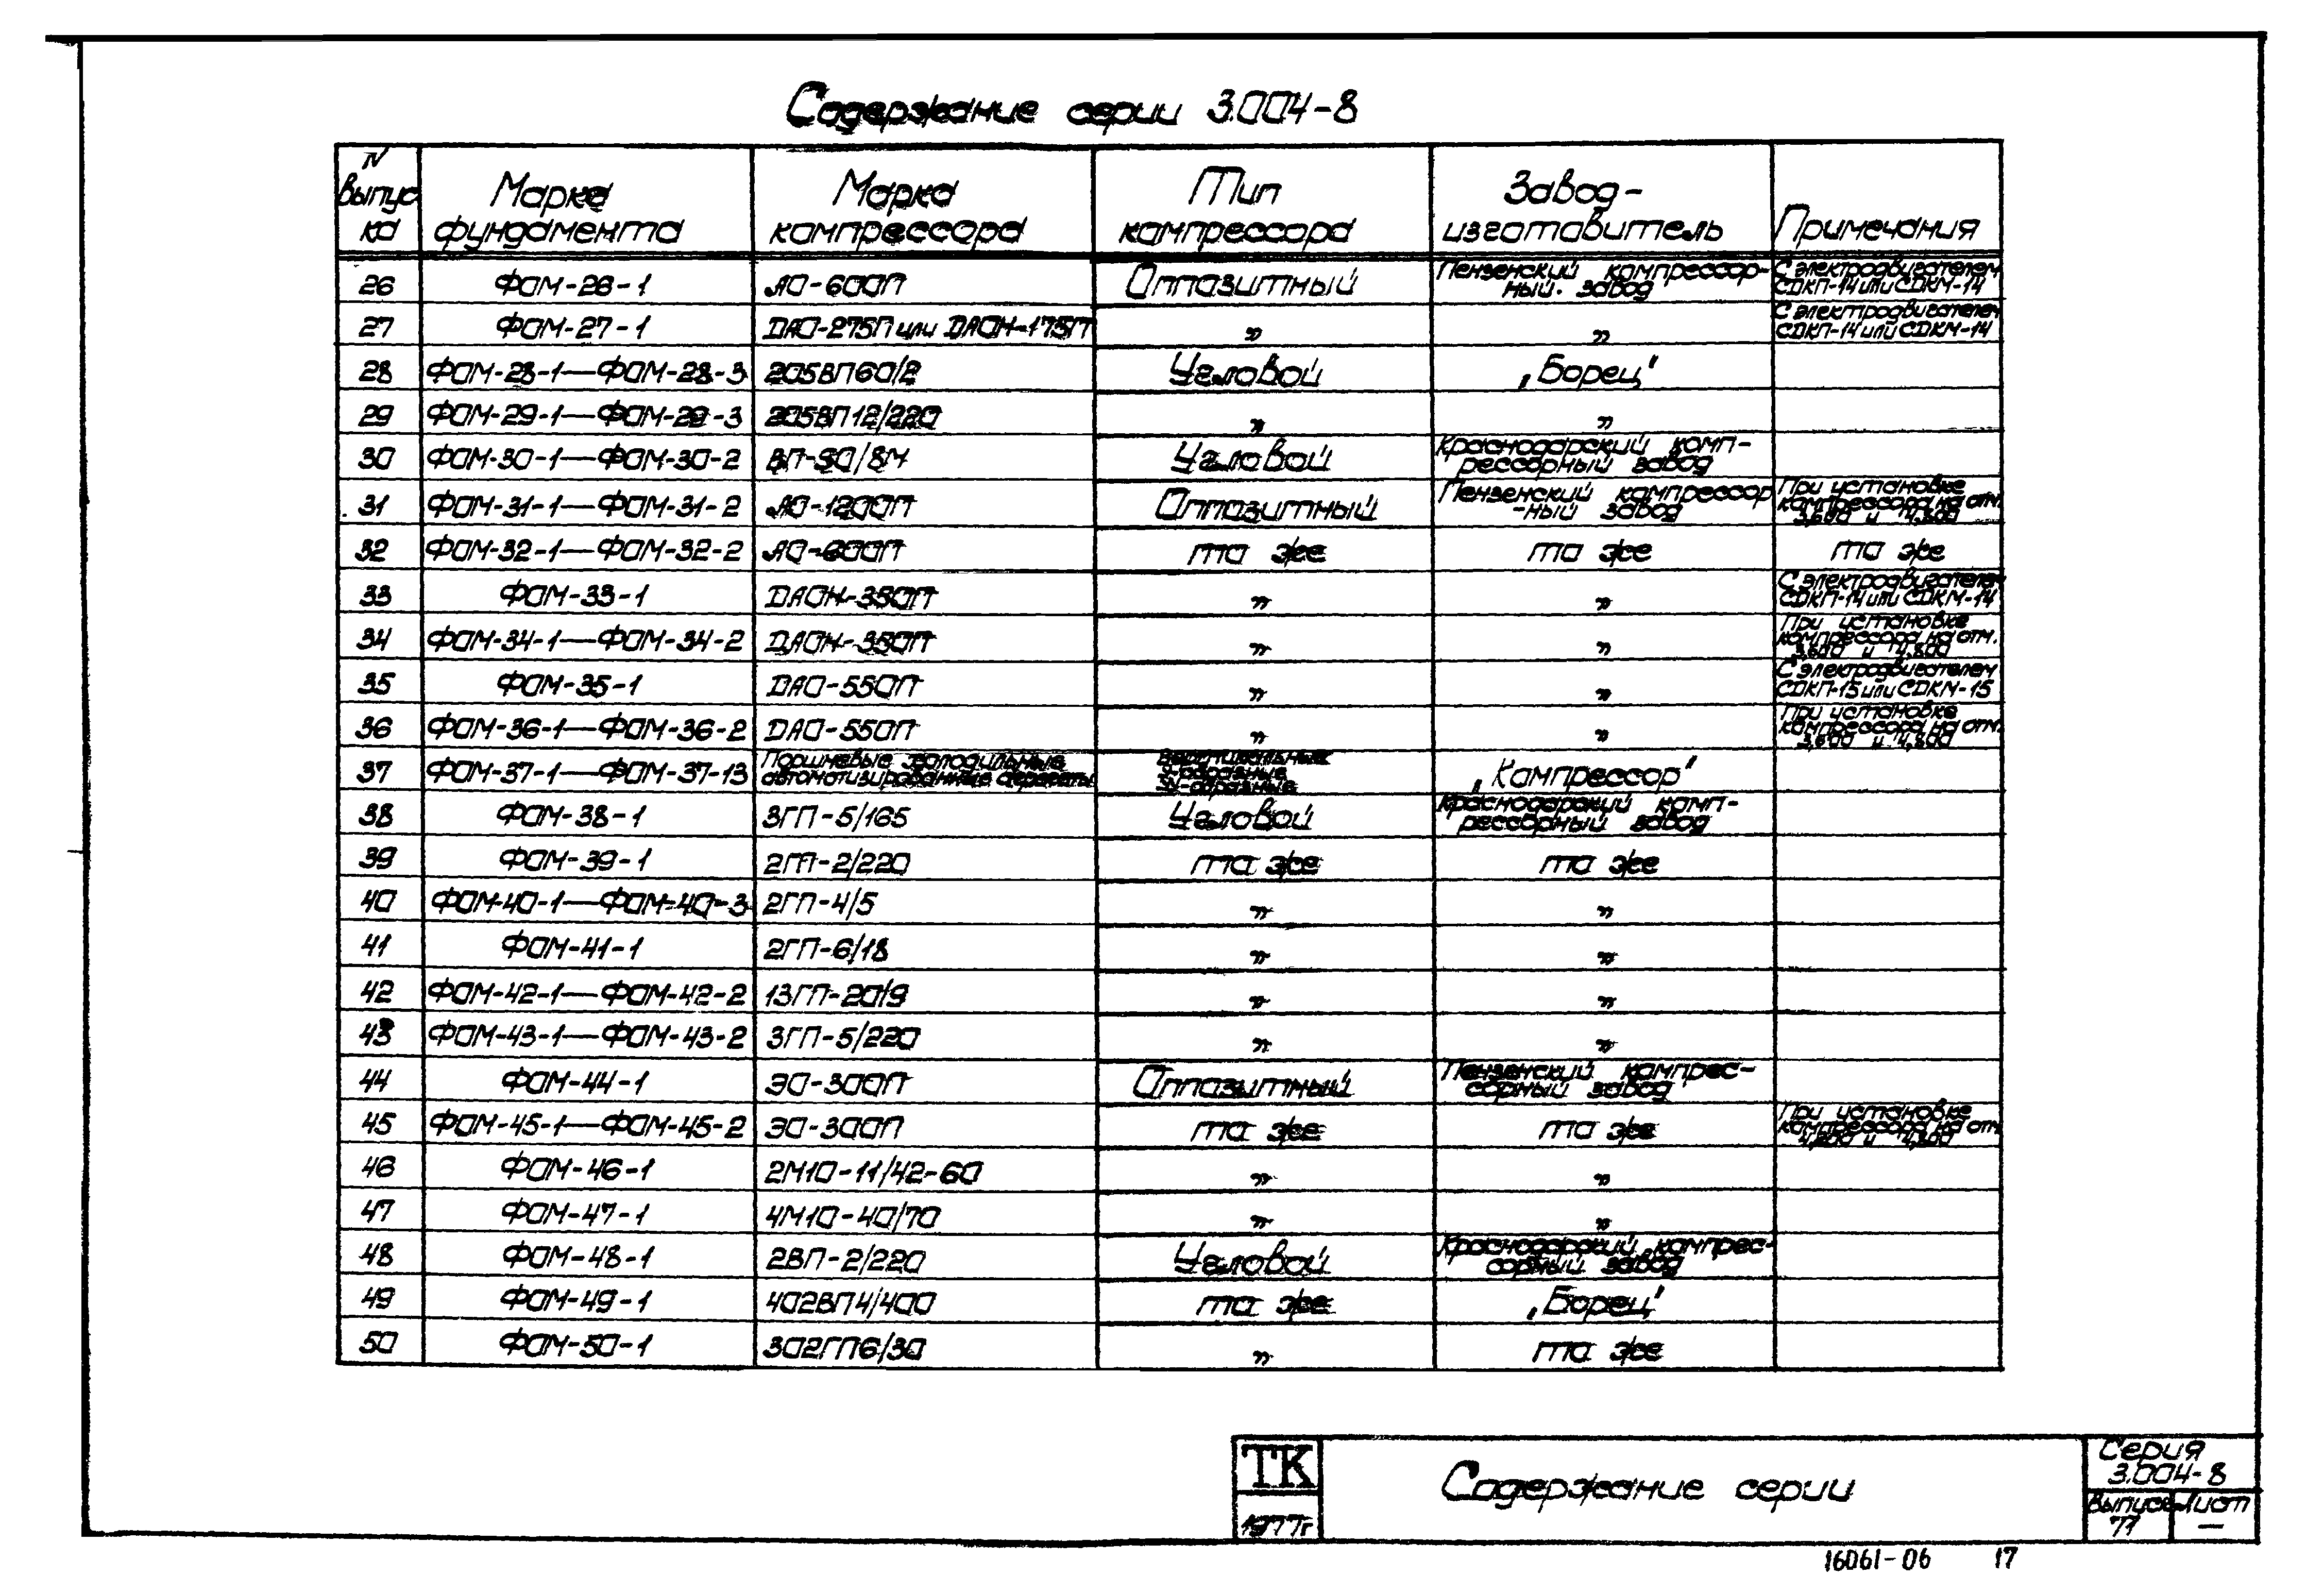 Содержание серии 3.004-8
N выпуска | Марка фундамента | Марка компрессора | Тип компрессора | Завод-изготовитель | Примечания
26 | ФОМ-26-1 | АО-600П | Оппозитный | Пензенский компрессор-ный. завод | С электродвигателем СДКП-14 или СДКМ-14
27 | ФОМ-27-1 | ДАО-275П или ДАОН-175П | „ | „ | С электродвигателем СДКП-14 или СДКМ-14
28 | ФОМ-28-1—ФОМ-28-3 | 205ВП60/2 | Угловой | „Борец"
29 | ФОМ-29-1—ФОМ-29-3 | 205ВП12/220 | „ | „
30 | ФОМ-30-1—ФОМ-30-2 | ВП-50/8М | Угловой | Краснодарский комп-рессорный завод
31 | ФОМ-31-1—ФОМ-31-2 | АО-1200П | Оппозитный | Пензенский компрессор-ный завод | При установке компрессора на отм. 3,600 и 4,800
32 | ФОМ-32-1—ФОМ-32-2 | АО-600П | то же | то же | то же
33 | ФОМ-33-1 | ДАОН-350П | „ | „ | С электродвигателем СДКП-14 или СДКМ-14
34 | ФОМ-34-1—ФОМ-34-2 | ДАОН-350П | „ | „ | При установке компрессора на отм. 3,600 и 4,800
35 | ФОМ-35-1 | ДАО-550П | „ | „ | С электродвигателем СДКП-15 или СДКМ-15
36 | ФОМ-36-1—ФОМ-36-2 | ДАО-550П | „ | „ | При установке компрессора на отм. 3,600 и 4,800
37 | ФОМ-37-1—ФОМ-37-13 | Поршневые холодильные автоматизированные агрегаты | Вертикальные -образные -образные | „Компрессор"
38 | ФОМ-38-1 | 3ГП-5/165 | Угловой | Краснодарский комп-рессорный завод
39 | ФОМ-39-1 | 2ГП-2/220 | то же | то же
40 | ФОМ-40-1—ФОМ-40-3 | 2ГП-4/5 | „ | „
41 | ФОМ-41-1 | 2ГП-6/18 | „ | „
42 | ФОМ-42-1—ФОМ-42-2 | 13ГП-20/9 | „ | „
43 | ФОМ-43-1—ФОМ-43-2 | 3ГП-5/220 | „ | „
44 | ФОМ-44-1 | ЭО-300П | Оппозитный | Пензенский компрес-сорный завод
45 | ФОМ-45-1—ФОМ-45-2 | ЭО-300П | то же | то же | При установке компрессора на отм. 4,200 и 4,800
46 | ФОМ-46-1 | 2М10-11/42-60 | „ | „
47 | ФОМ-47-1 | 4М10-40/70 | „ | „
48 | ФОМ-48-1 | 2ВП-2/220 | Угловой | Краснодарский компрес-сорный завод
49 | ФОМ-49-1 | 402ВП4/400 | то же | „Борец"
50 | ФОМ-50-1 | 302ГП6/30 | „ | то же
ТК
1977г
Содержание серии
Серия
3.004-8
Выпуск Лист
77 —
16061-06 17